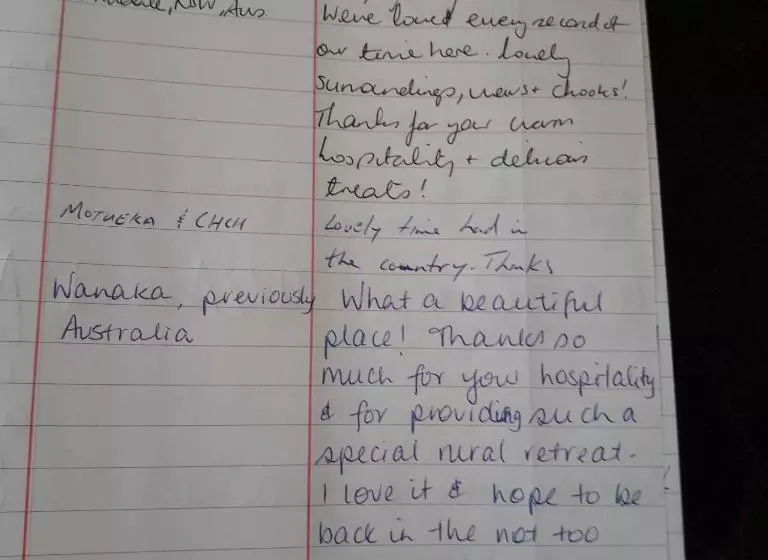 NSW, Aus.
We've loved every second of
our time here. Lovely
surroundings, views + chooks!
Thanks for your warm
hospitality + delicious
treats!
MOTUEKA & CHCH
Lovely time had in
the country. Thanks
Wanaka, previously
Australia
What a beautiful
place! Thanks so
much for your hospitality
& for providing such a
special rural retreat.
I love it & hope to be
back in the not too